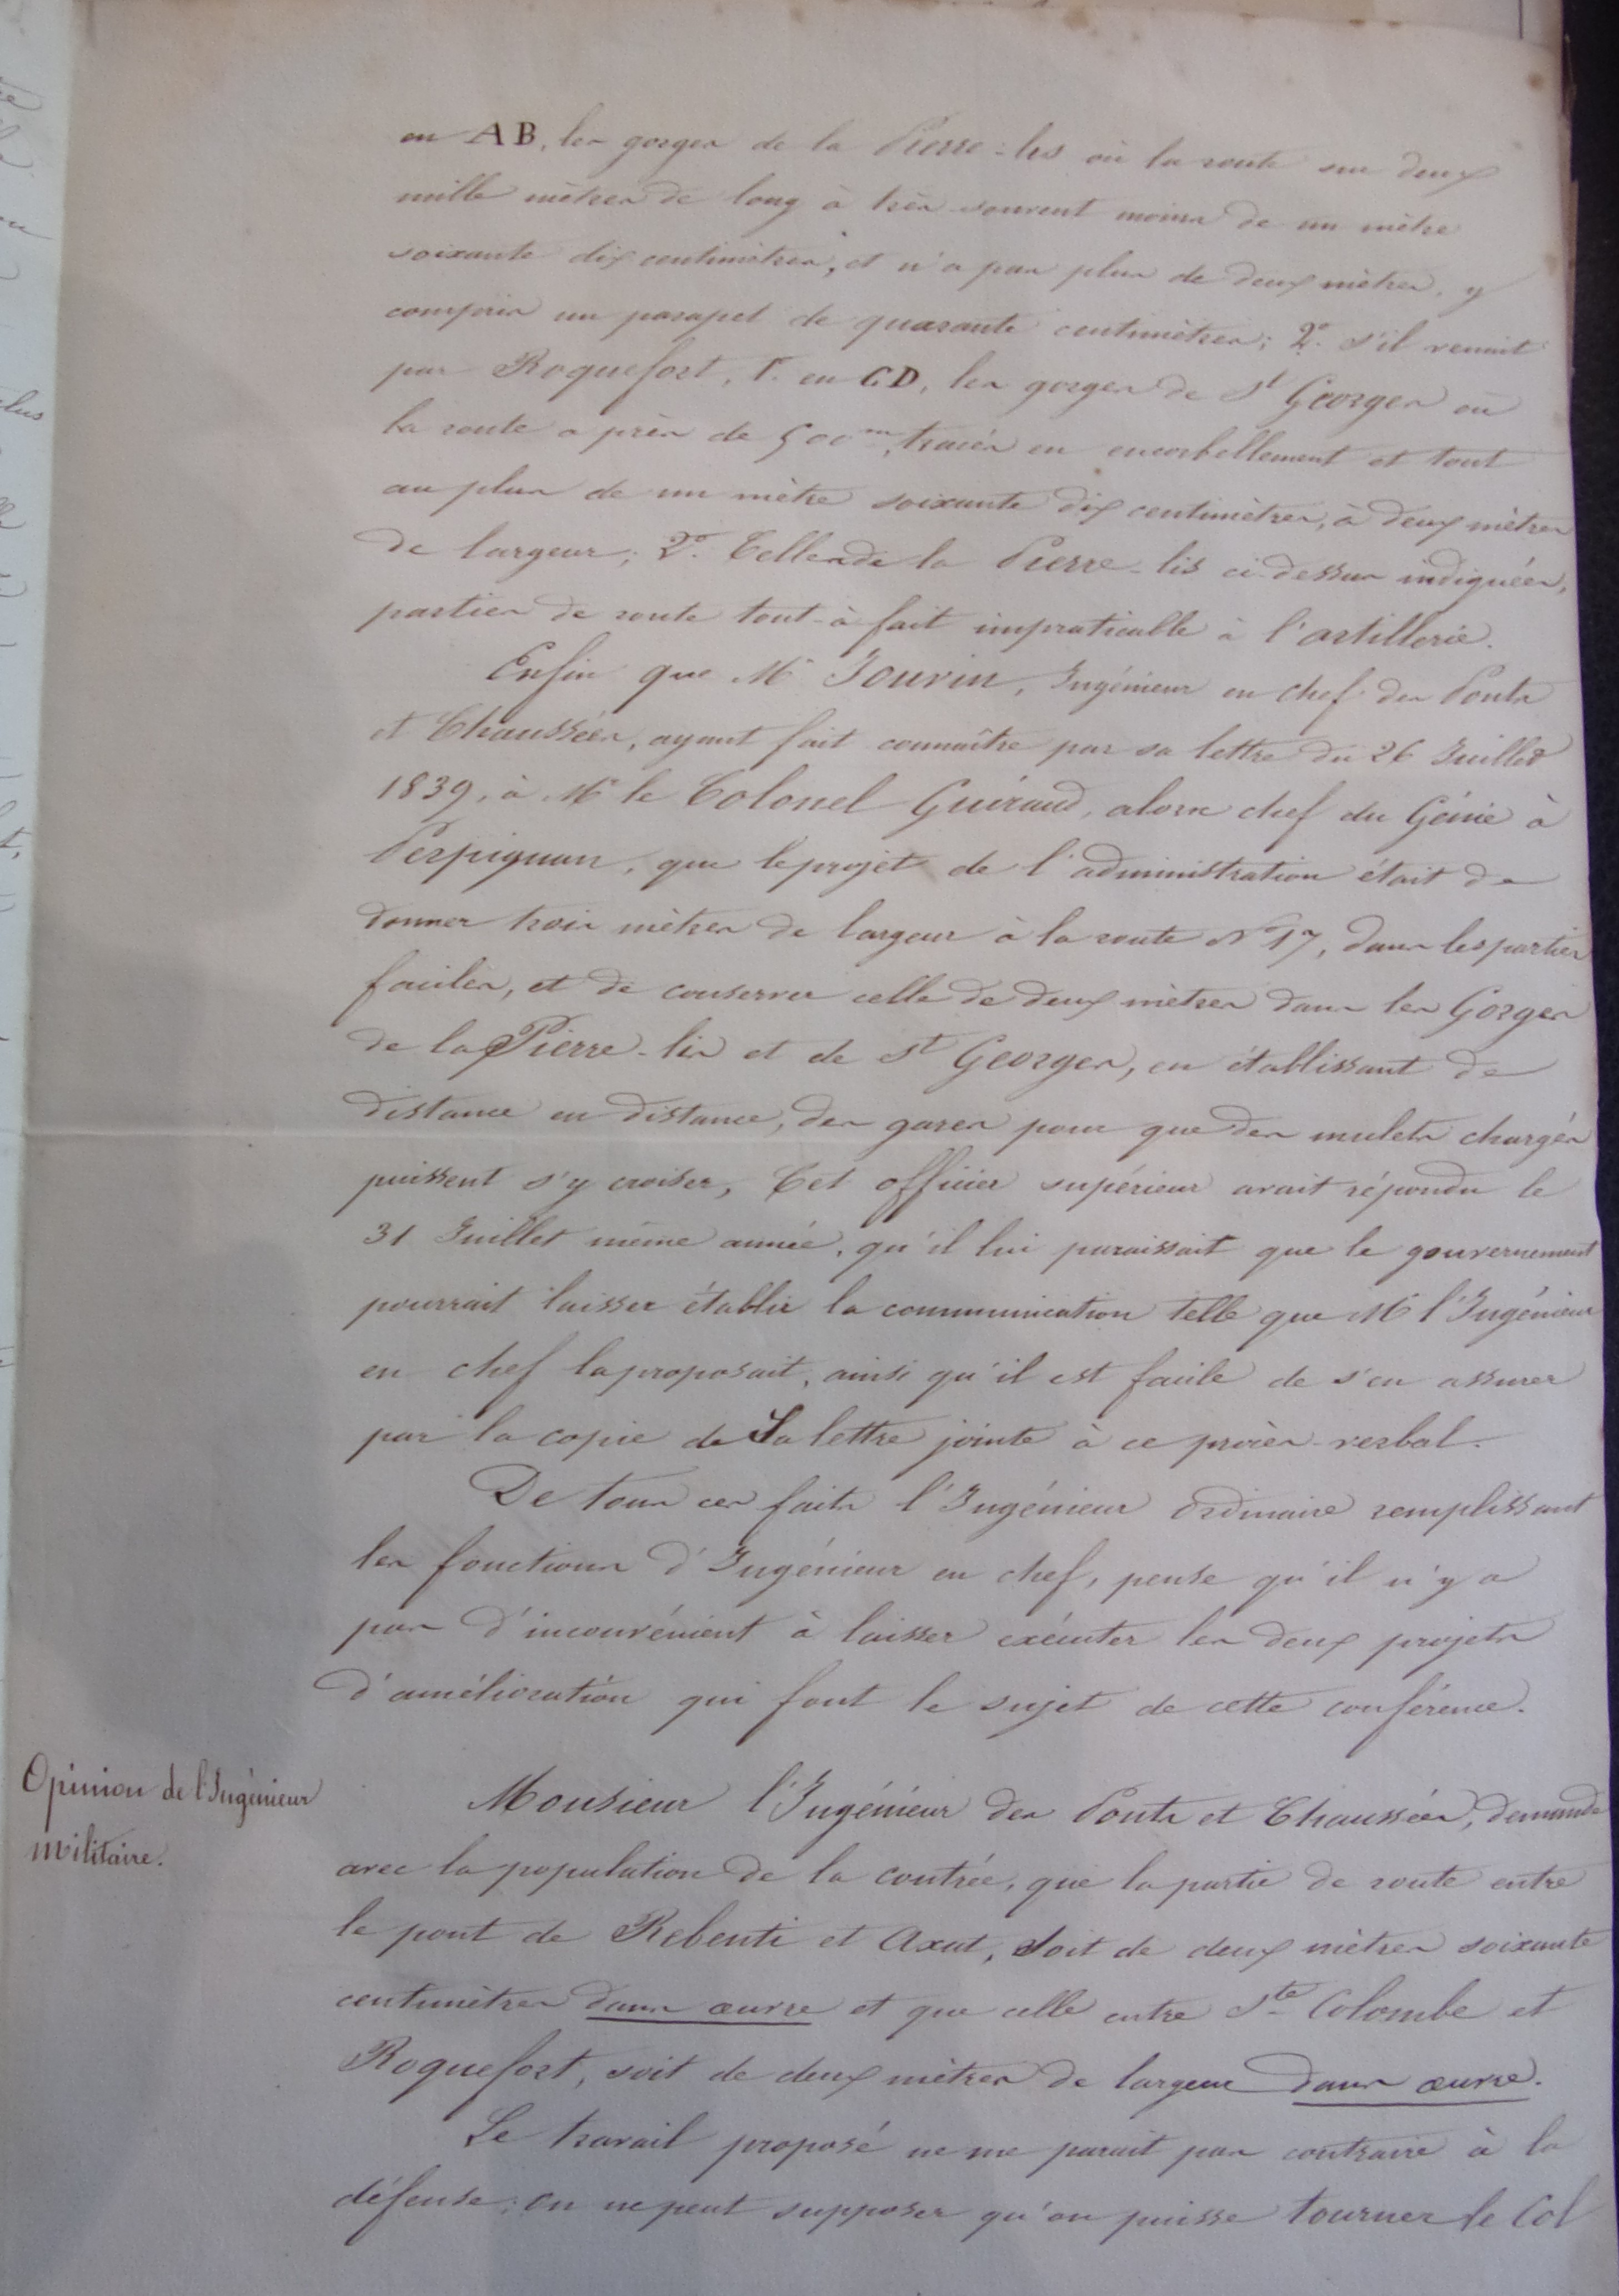 en AB, les gorges de la Pierre-lis où la route sur deux
mille mètres de long à très souvent moins de un mètre
soixante dix centimètres, et n'a pas plus de deux mètres, y
compris un parapet de quarante centimètres; 2.° s'il venait
par Roquefort, 1.° en CD, les gorges de St Georges où
la route a près de 500m, tracés en encorbellement et tout
au plus de un mètre soixante dix centimètres, à deux mètres
de largeur; 2.° Celles de la Pierre-lis ci-dessus indiquées,
parties de route tout-à-fait impraticable à l'artillerie.
Enfin que Mr Jouvin, Ingénieur en chef des Ponts
et Chaussées, ayant fait connaître par sa lettre du 26 Juillet
1839, à Mr le Colonel Guiraud, alors chef du Génie à
Perpignan, que le projet de l'administration était de
donner trois mètres de largeur à la route N° 17, dans les parties
faciles, et de conserver celle de deux mètres dans les Gorges
de la Pierre-lis et de St Georges, en établissant de
distance en distance, des gares pour que des mulets chargés
puissent s'y croiser, Cet officier supérieur avait répondu le
31 Juillet même année, qu'il lui paraissait que le gouvernement
pourrait laisser établir la communication telle que Mr l'Ingénieur
en chef la proposait, ainsi qu'il est facile de s'en assurer
par la copie de Sa lettre jointe à ce procès-verbal.
De tous ces faits l'Ingénieur ordinaire remplissant
les fonctions d'Ingénieur en chef, pense qu'il n'y a
pas d'inconvénient à laisser exécuter les deux projets
d'amélioration qui font le sujet de cette conférence.
Opinion de l'Ingénieur
militaire.
Monsieur l'Ingénieur des Ponts et Chaussées, demande
avec la population de la contrée, que la partie de route entre
le pont de Rebenti et Axat, soit de deux mètres soixante
centimètres dans œuvre et que celle entre Ste Colombe et
Roquefort, soit de deux mètres de largeur dans œuvre.
Le travail proposé ne me parait pas contraire à la
défense; on ne peut supposer qu'on puisse tourner le Col